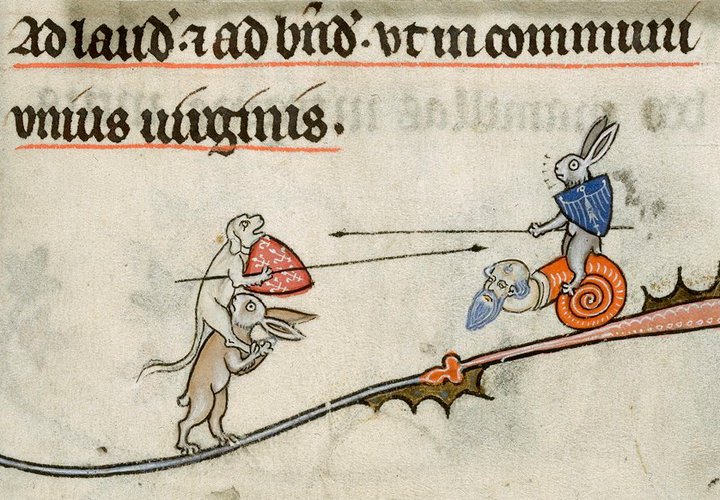 Ad laud̛. ⁊ ad bn̄d̛. vt in communi
vnius uirginis.